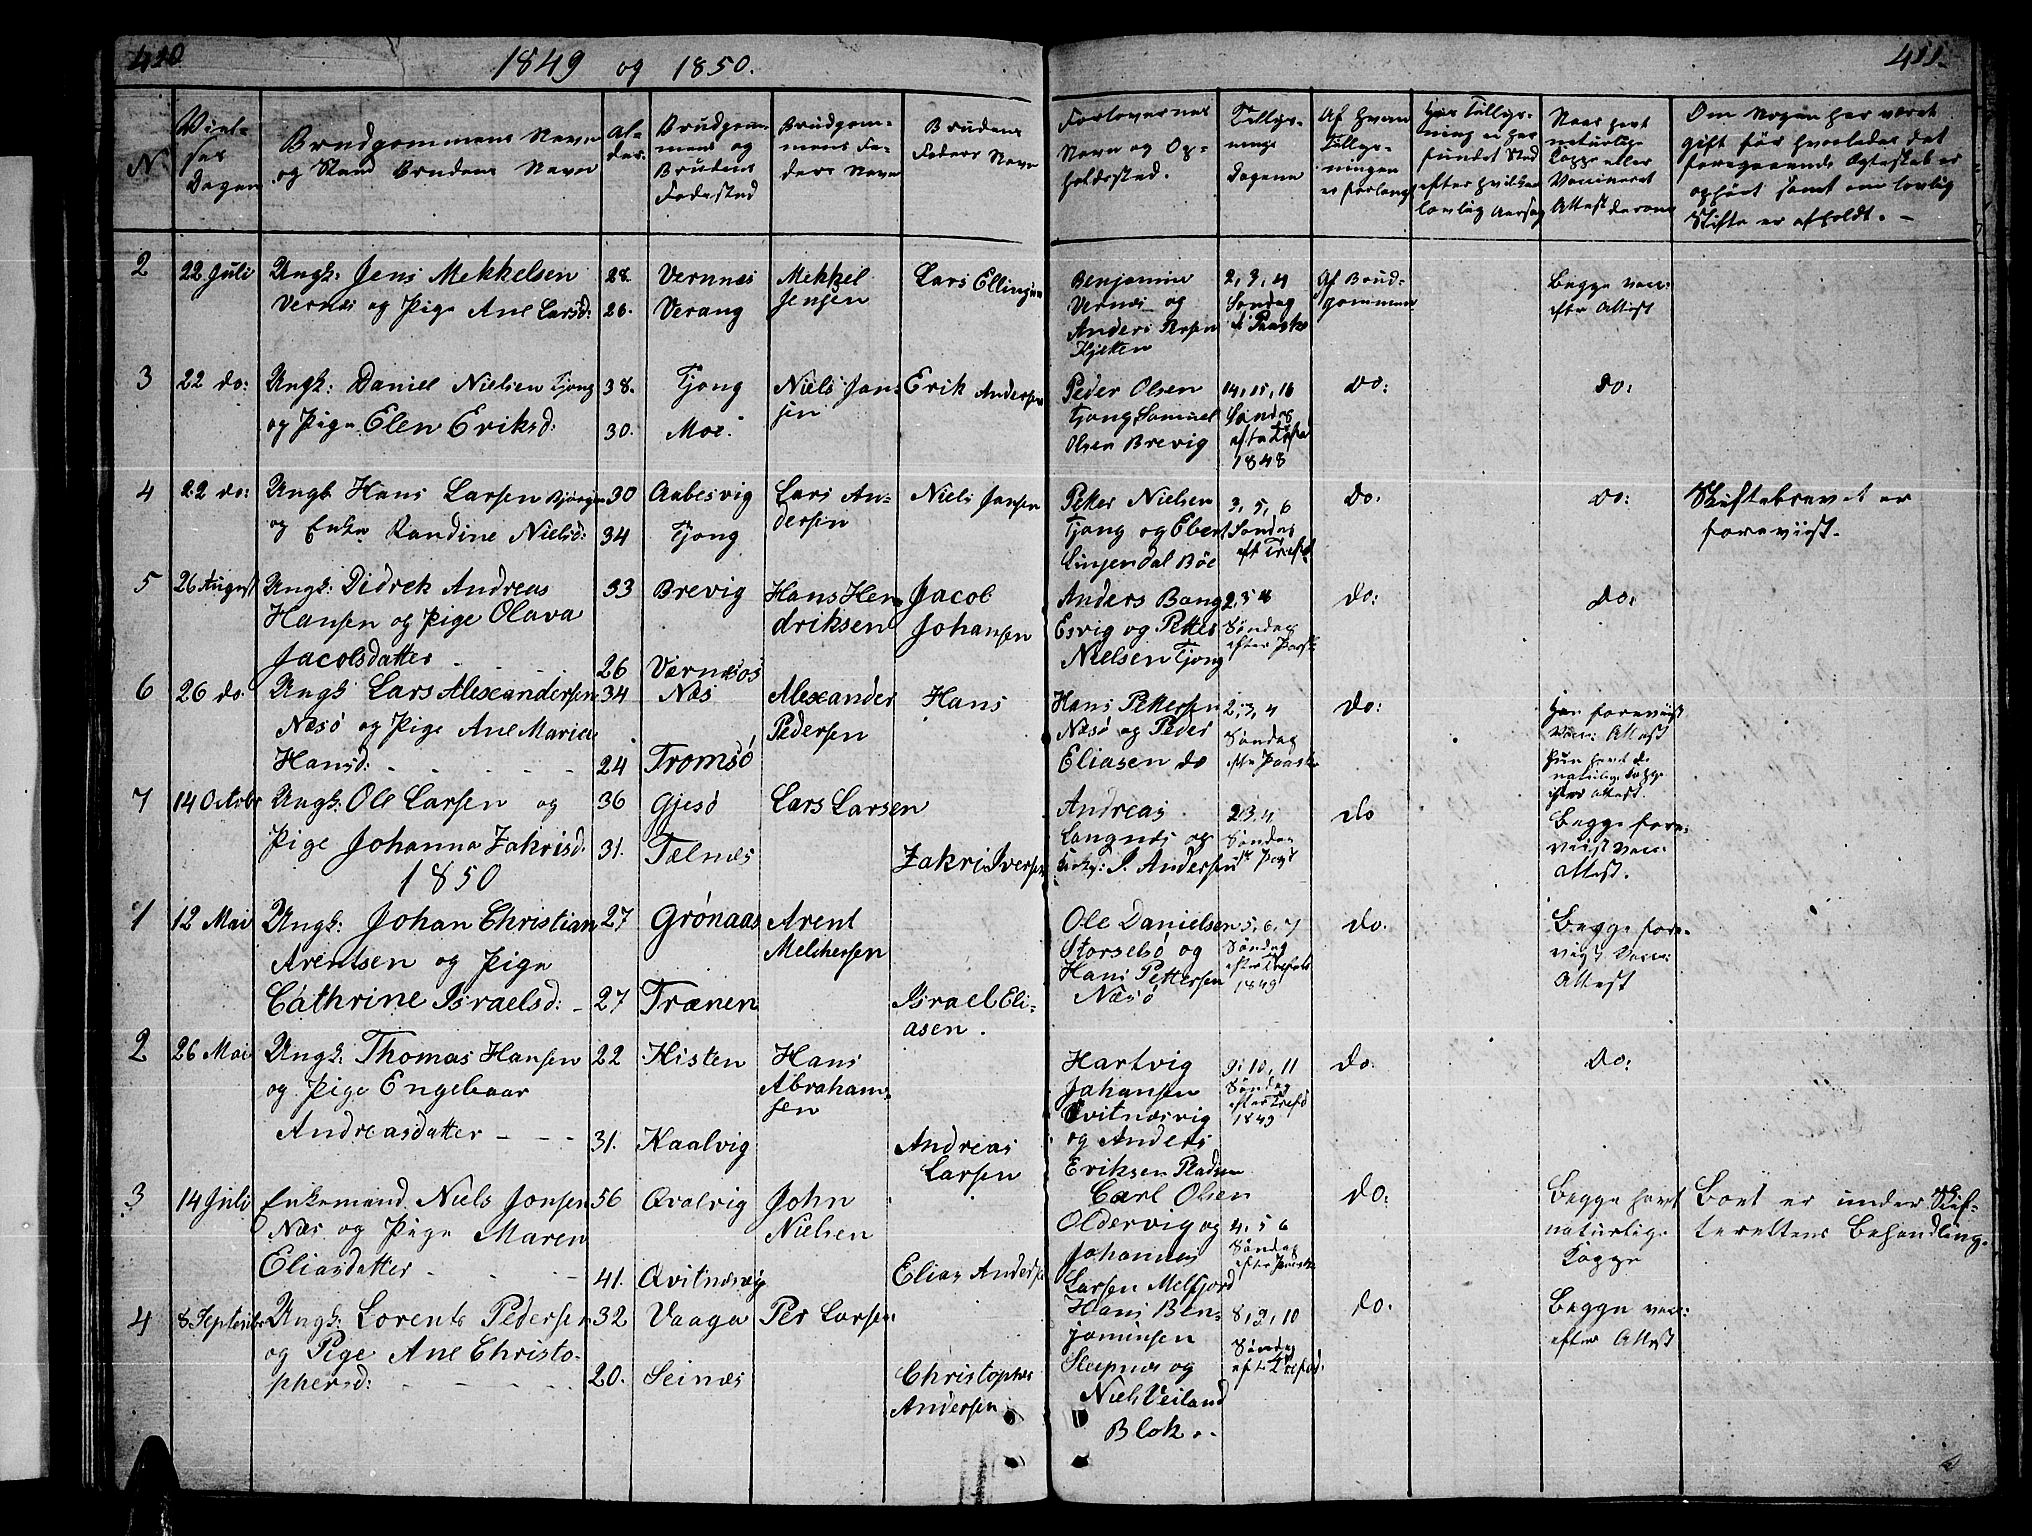 410
1849 og 1850.
411.
N.
Viel-
ses
Dagen
Brudgommens Navn
og Stand Brudens Navn
Al-
der.
Brudgom-
mens og
Brudens
Fødested
Brudgom-
mens Fa-
ders Navn
Brudens
Faders Navn
Forlovernes
Navn og Op-
holdssted.
Tillys-
nings
Dagene
Af hvem
Tillys-
ningen
er forlangt
Har Tillys-
ning ei har
fundet Sted
efter hvilken
lovlig Aarsag
Naar havt
naturlige
Kopper eller
Vaccineret
Attest derom
Om Nogen har været
gift før hvorledes det
foregaaende Egteskab er
ophørt samt om lovlig
Skifte er afholdt. -
2 22 Juli Ungk: Jens Mekkelsen 28. Vernnæs Mekkel Jensen Lars Ellingsen
Vernæs og Pige Ane Larsd: 26. Verang
Benjamin
Vernæs og
Anders
Kjetten
2, 3, 4
Søndag
e. Paaske
Af Brud-
gommen
Begge vac:
efter Attest
3 22 do: Ungk: Daniel Nielsen Tjong 38. Tjong Niels Jansen Erik Andersen
og Pige Elen Eriksd: 30. Moe.
Peder Olsen
Tjong Samuel
Olsen Brevig
14, 15, 16
Søndag
efter Trefd
1848
do:
do:
4 22 do: Ungk Hans Larsen 30 Aabesvig Lars Andersen Niels Jansen
og Enke Randine Nielsd: 34 Tjong
Petter Nielsen
Tjong og Ebert
Linjendal Böe
3, 5, 6
Søndag
eft Trefd
do:
do:
Skiftebrevet er
foreviist.
5 26 August Ungk: Didrek Andreas 33 Brevig Hans Hendriksen Jacob Johansen
Hansen og Pige Olava
Jacobsdatter - - - 26 Værnæs
Anders Bang
Esvig og Petter
Nielsen Tjong
2, 3, 4
Søndag
efter Paaske
do:
do:
6 26 do. Ungk Lars Alexandersen 34 Næs Alexander Pedersen Hans
Næsö og Pige Ane Maria
Hansd: - - - - 24 Tromsö
Hans Pettersen
Næsö og Peder
Eliasen do
2, 3, 4
Søndag
efter Paaske
do:
Han foreviist
vac: Attest
hun havt de
naturlige Kopper
efter Attest.
7 14 Octobr Ungk: Ole Larsen og 36 Gjesö Lars Larsen
Pige Johanna Zakrisd. 31. Tælnæs Zakri Iversen
Andreas
Langnæs og
Kirks: I. Andersen
2, 3, 4
Søndag
do
Begge fore-
viist vac:
Attest.
1850
1 12 Mai Ungk: Johan Christian 27 Grönaas Arent Melchersen
Arentsen og Pige
Cathrine Israelsd: - 27 Trænen Israel Eli-
asen.
Ole Danielsen
Storselsö og
Hans Pettersen
Næsö
5, 6, 7
Søndag
efter Trefold
1849
do.
Begge fore-
vist Vac:
Attest
2 26 Mai Ungk: Thomas Hansen 22 Kisten Hans Abraham-
sen
og Pige Engebaar
Andreasdatter - - - 31. Kaalvig Andreas
Larsen
Hartvig
Johansen
Qvitnæsvig
og Anders
Eriksen
9, 10, 11
Søndag
efter Trefd
1849
do.
do:
3 14 Juli Enkemand Niels Jonsen 56 Qvalvig John Nielsen
Næs og Pige Maren
Eliasdatter - - - 41. Qvitnæsvig Elias Anders
Carl Olsen
Oldervig og
Johannes
Larsen Melfjord
4, 5 6
Søndag
efter Paaske
do:
Begge havt
naturlige
Kopper
Boet er under Skif-
terettens Behandling.
4 8 September Ungk: Lorents Pedersen 32 Vaaga Per Larsen
og Pige Ane Christo-
phersd: - - - - 20. Seinæs Christopher
Andersen
Hans Ben-
jaminsen
Slepnæs og
Niels Veiland
Blok. -
8, 9, 10
Søndag
eft Trefod:
do.
Begge vac:
efter Attest